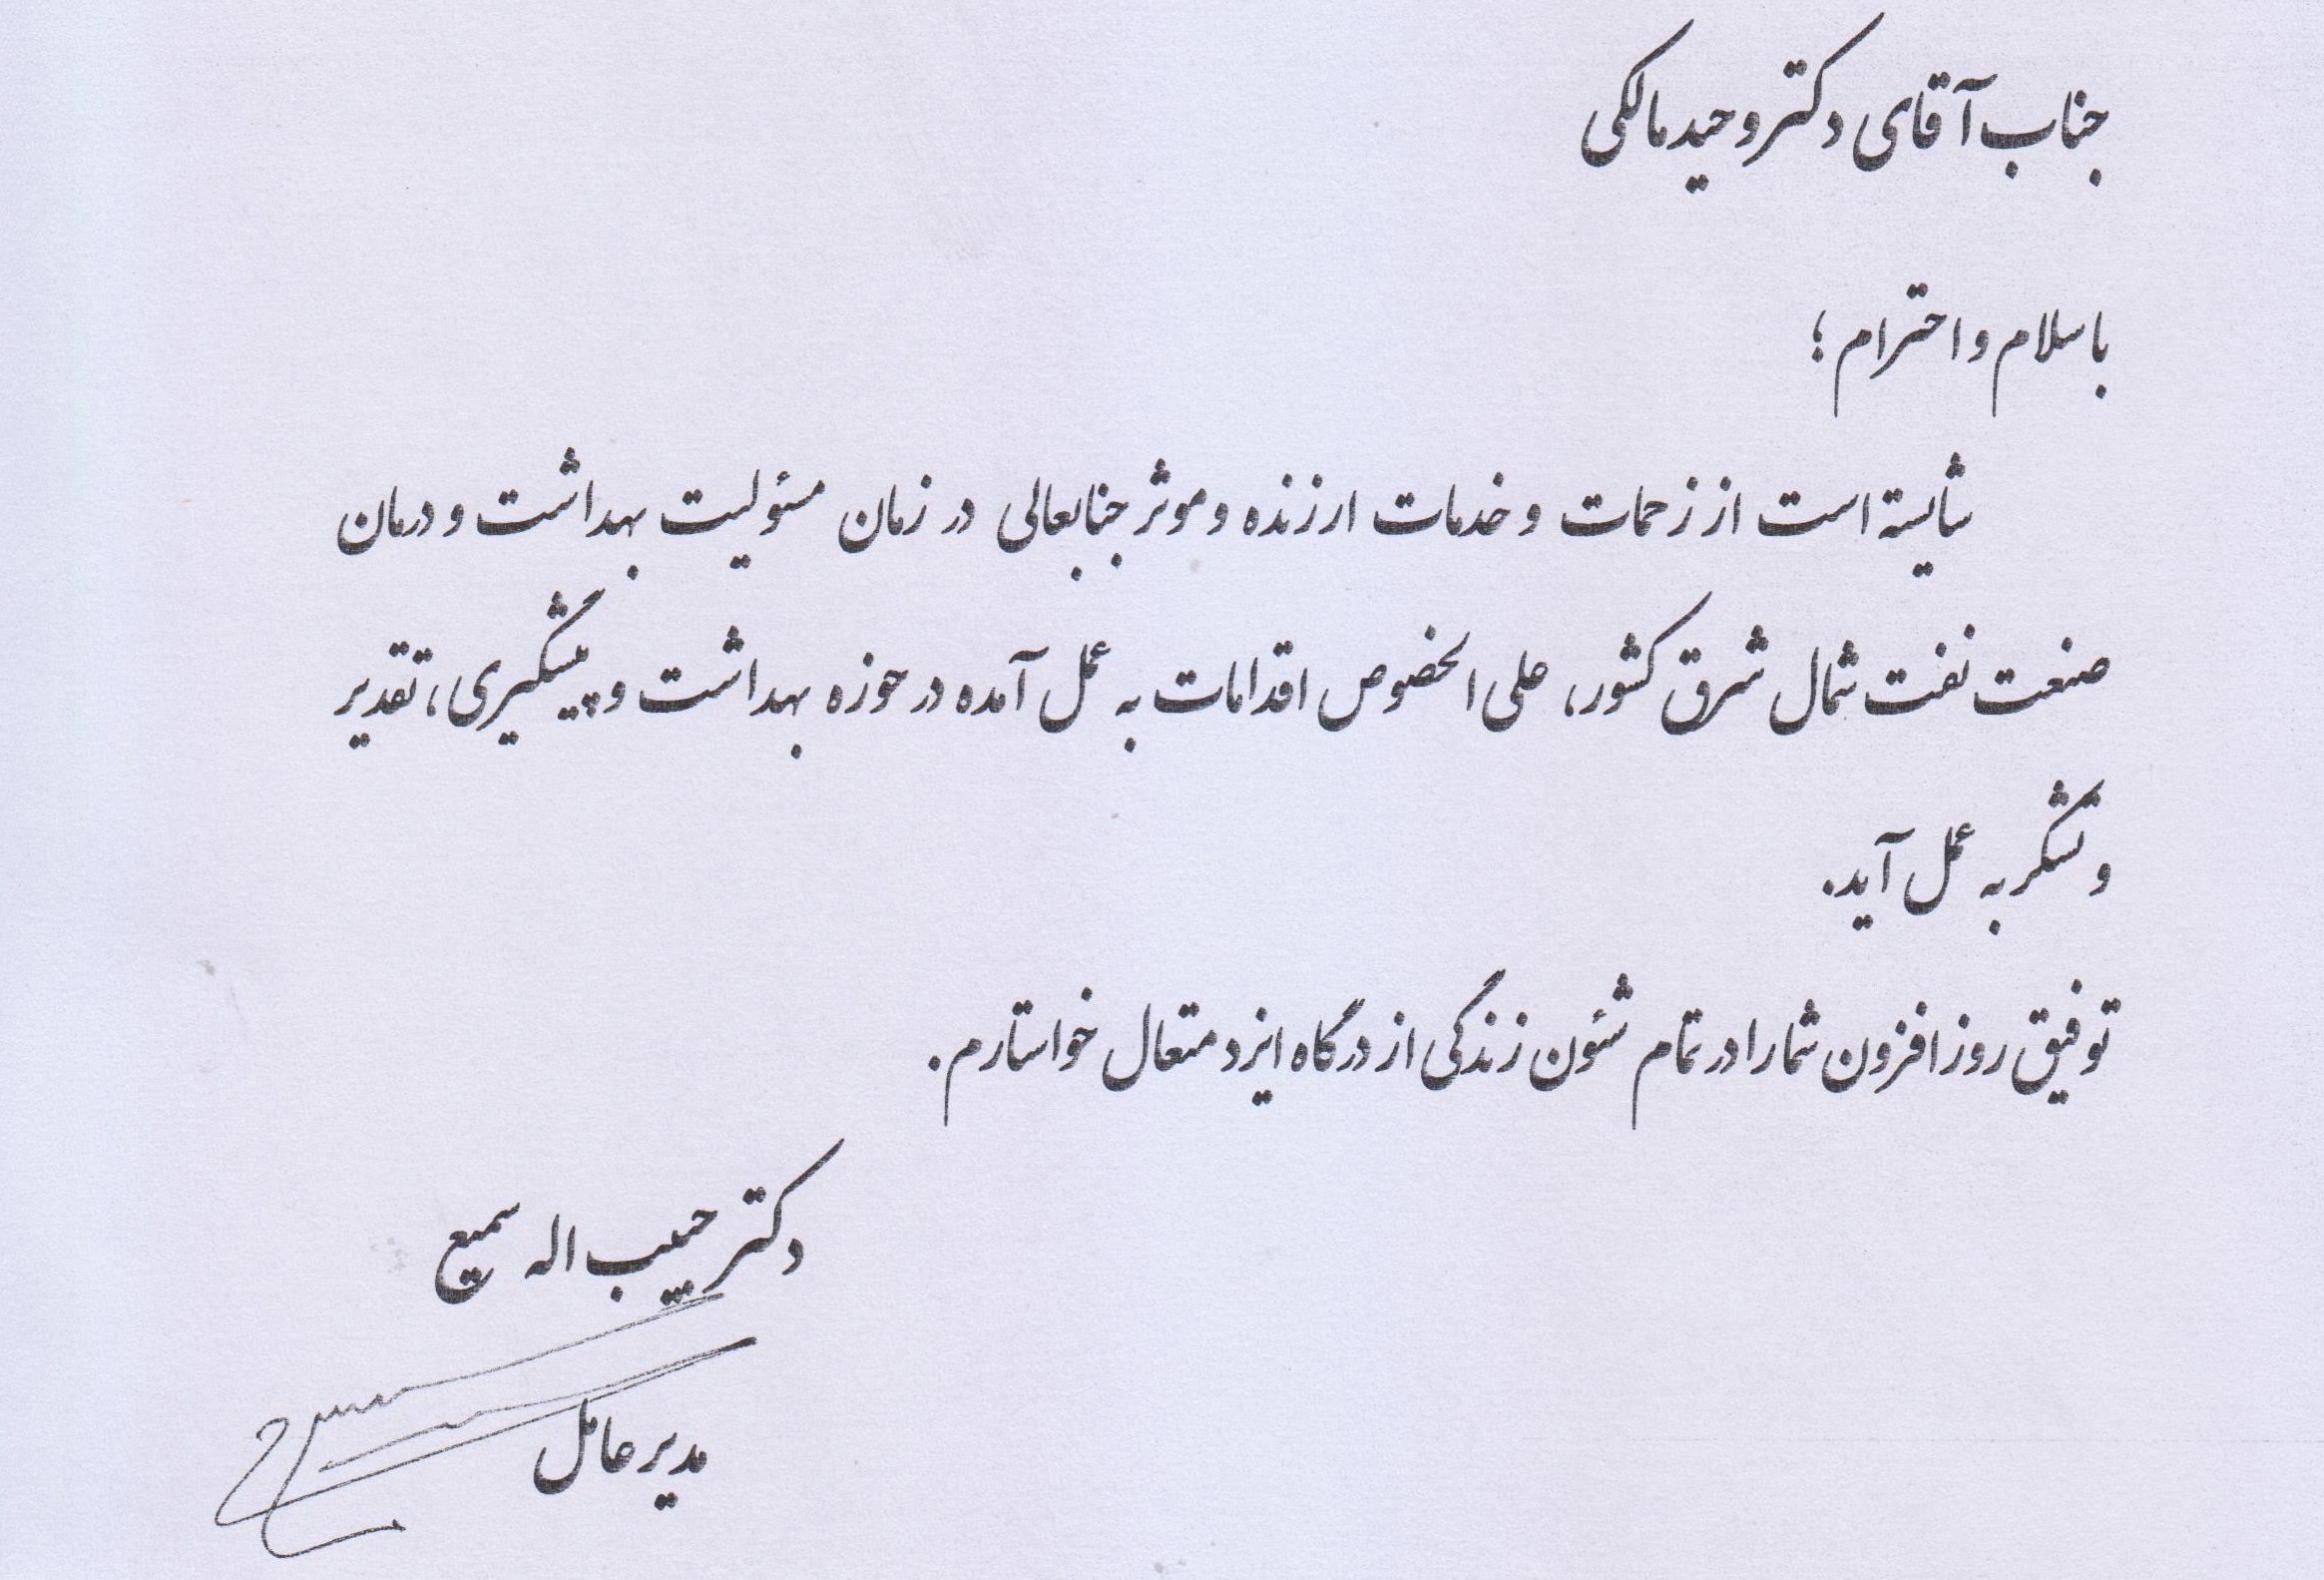 جناب آقای دکتر وحید مالکی
با سلام و احترام ؛
شایسته است از زحمات و خدمات ارزنده و موثر جنابعالی در زمان مسئولیت بهداشت و درمان
صنعت نفت شمال شرق کشور، علی الخصوص اقدامات به عمل آمده در حوزه بهداشت و پیشگیری، تقدیر
و تشکر به عمل آید.
توفیق روز افزون شما را در تمام شئون زندگی از درگاه ایزد متعال خواستارم.
دکتر حبیب اله سمیع
مدیر عامل